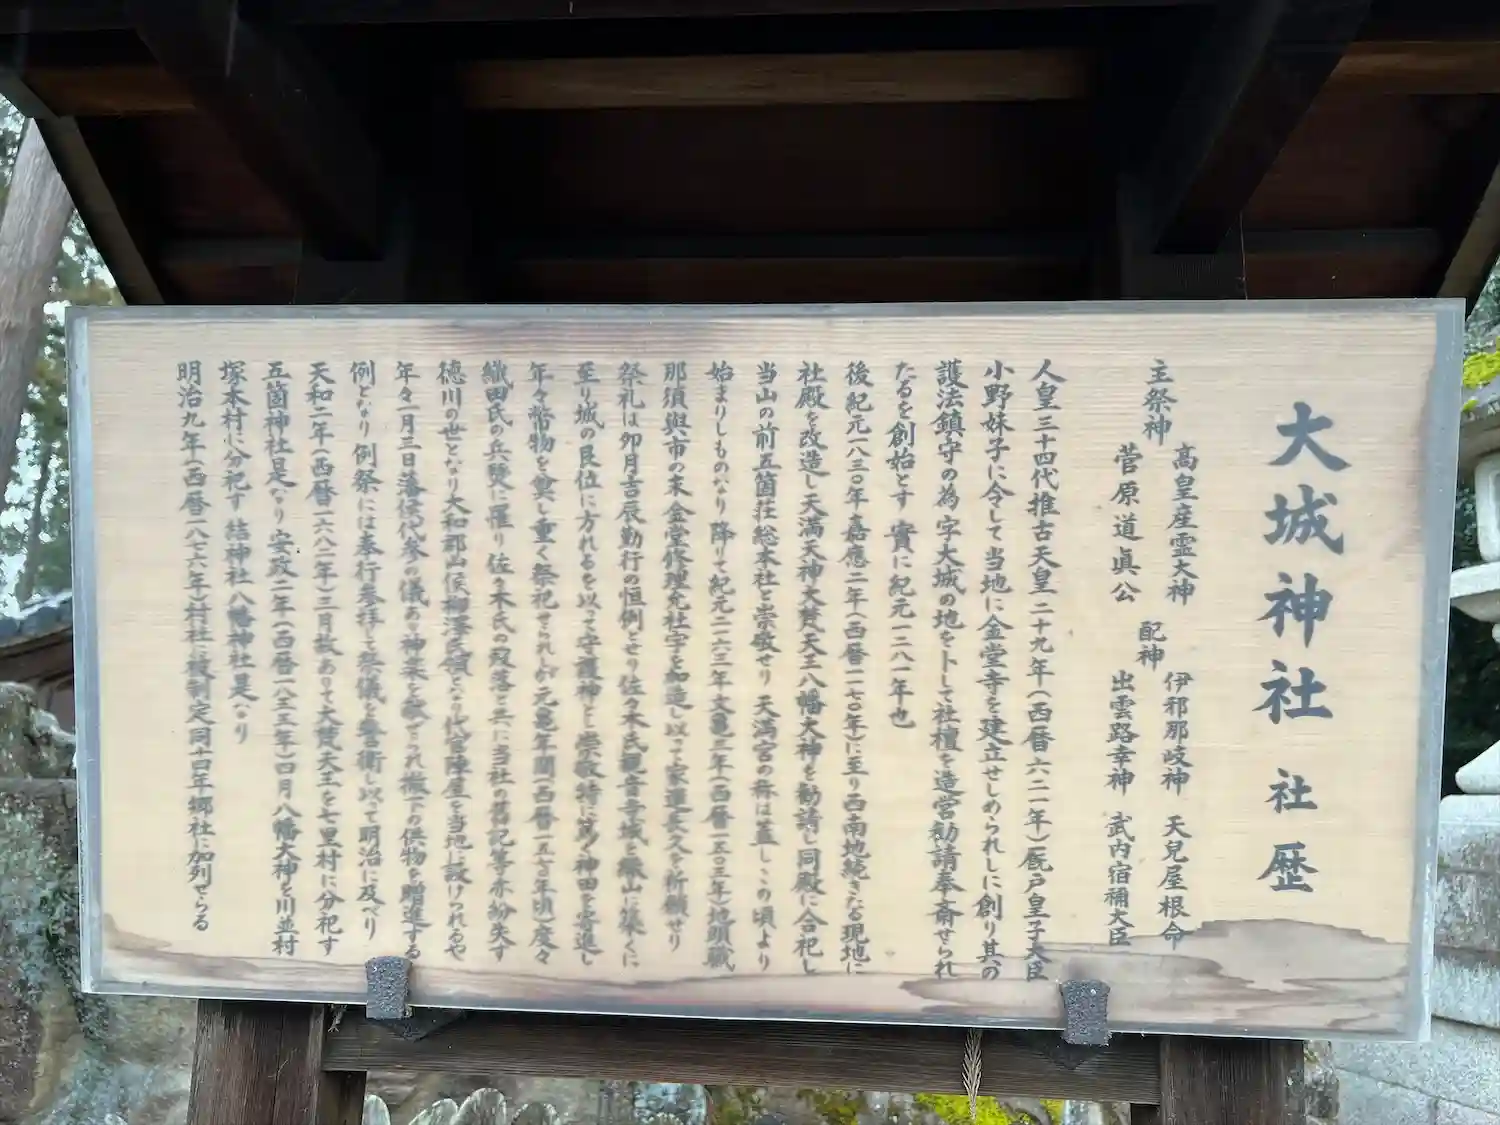 大城神社 社歴
主祭神
高皇産霊大神
菅原道眞公
配神
伊邪那岐神 天兒屋根命
出雲路幸神 武内宿禰大臣
人皇三十四代推古天皇二十九年(西暦六二一年)厩戸皇子大臣
小野妹子に令して当地に金堂寺を建立せしめられしに創り其の
護法鎮守の為字大城の地を卜して社檀を造営勧請奉斎せられ
たるを創始とす 實に紀元一二八一年也
後紀元一八三〇年嘉應二年(西暦一一七〇年)に至り西南地続きなる現地に
社殿を改造し天満天神大梵天王八幡大神を勧請し同殿に合祀し
当山の前五箇荘総本社と崇敬せり 天満宮の称は蓋しこの頃より
始まりしものなり 降りて紀元二一六三年文亀三年(西暦一五〇三年)地頭職
那須與市の末金堂修理允社宇を加造し以って家運長久を祈願せり
祭礼は卯月吉辰勤行の恒例とせり佐々木氏観音寺城を繖山に築くに
至り城の艮位に方れるを以って守護神と崇敬特に篤く神田を寄進し
年々幣物を奠し重く祭祀せられしが元亀年間(西暦一五七〇年頃)度々
織田氏の兵燹に罹り佐々木氏の没落と共に当社の舊記等亦紛失す
徳川の世となり大和郡山侯柳澤氏領となり代官陣屋を当地に設けられるや
年々一月三日藩侯代参の儀あり神菜を献ぜられ撤下の供物を贈進する
例となり 例祭には奉行参拝して祭儀を警衛し以って明治に及べり
天和二年(西暦一六八二年)三月故ありて大梵天王を七里村に分祀す
五箇神社是なり 安政二年(西暦一八五五年)四月八幡大神を川並村
塚本村に分祀す 結神社八幡神社是なり
明治九年(西暦一八七六年)村社に被制定同十四年郷社に加列せらる